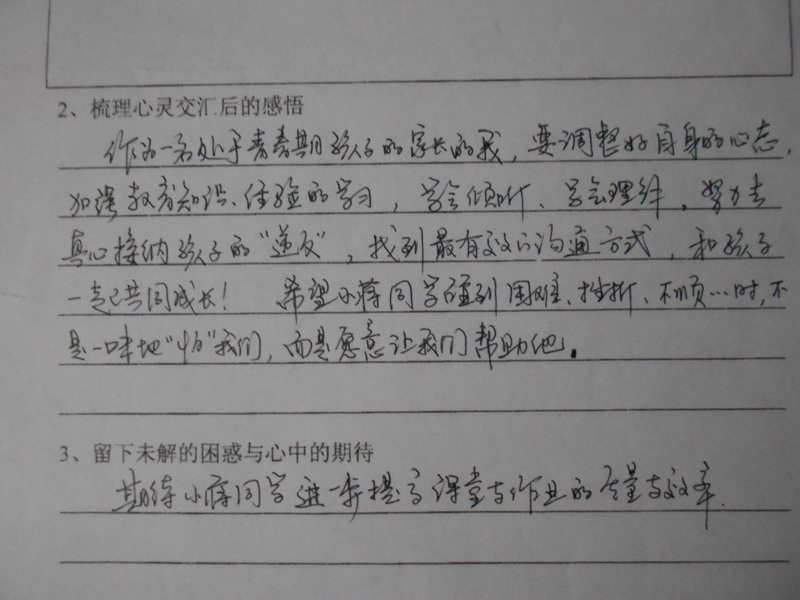 2、梳理心灵交汇后的感悟
作为一名处于青春期孩子的家长的我，要调整好自身的心态，
加强教育知识、经验的学习，学会倾听、学会理解，努力去
真心接纳孩子的“逆反”，找到最有效的沟通方式，和孩子
一起共同成长！ 希望小蒋同学碰到困难、挫折、不顺…时，不
是一味地“怕”我们，而是愿意让我们帮助他。
3、留下未解的困惑与心中的期待
期待小蒋同学进一步提高课堂与作业的质量与效率.